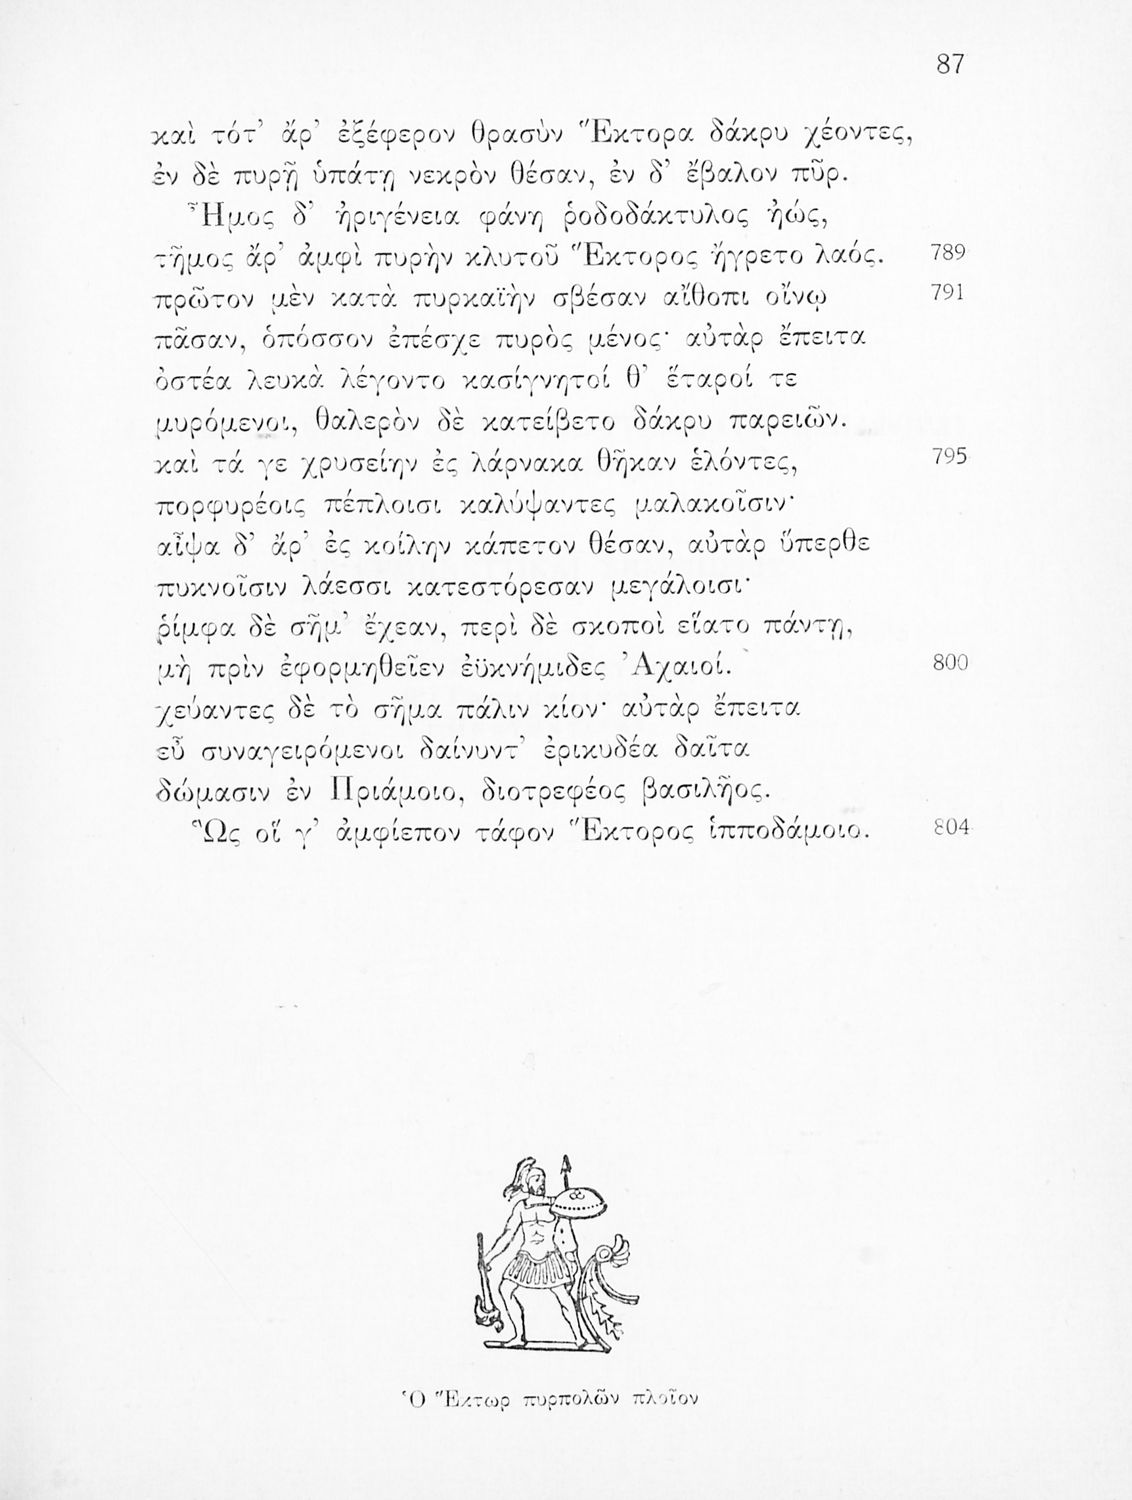 87
καὶ τότ’ ἄρ’ ἐξέφερον θρασὺν Ἕκτορα δάκρυ χέοντες,
ἐν δὲ πυρῇ ὑπάτῃ νεκρὸν θέσαν, ἐν δ’ ἔβαλον πῦρ.
Ἦμος δ’ ἠριγένεια φάνη ῥοδοδάκτυλος ἠώς,
τῆμος ἄρ’ ἀμφὶ πυρὴν κλυτοῦ Ἕκτορος ἤγρετο λαός. 789
πρῶτον μὲν κατὰ πυρκαϊὴν σβέσαν αἴθοπι οἴνῳ 791
πᾶσαν, ὁπόσσον ἐπέσχε πυρὸς μένος· αὐτὰρ ἔπειτα
ὀστέα λευκὰ λέγοντο κασίγνητοί θ’ ἕταροί τε
μυρόμενοι, θαλερὸν δὲ κατείβετο δάκρυ παρειῶν.
καὶ τά γε χρυσείην ἐς λάρνακα θῆκαν ἑλόντες, 795
πορφυρέοις πέπλοισι καλύψαντες μαλακοῖσιν·
αἶψα δ’ ἄρ’ ἐς κοίλην κάπετον θέσαν, αὐτὰρ ὕπερθε
πυκνοῖσιν λάεσσι κατεστόρεσαν μεγάλοισι·
ῥίμφα δὲ σῆμ’ ἔχεαν, περὶ δὲ σκοποὶ εἵατο πάντῃ,
μὴ πρὶν ἐφορμηθεῖεν ἐϋκνήμιδες Ἀχαιοί. 800
χεύαντες δὲ τὸ σῆμα πάλιν κίον· αὐτὰρ ἔπειτα
εὖ συναγειρόμενοι δαίνυντ’ ἐρικυδέα δαῖτα
δώμασιν ἐν Πριάμοιο, διοτρεφέος βασιλῆος.
Ὣς οἵ γ’ ἀμφίεπον τάφον Ἕκτορος ἱπποδάμοιο. 804
Ὁ Ἕκτωρ πυρπολῶν πλοῖον